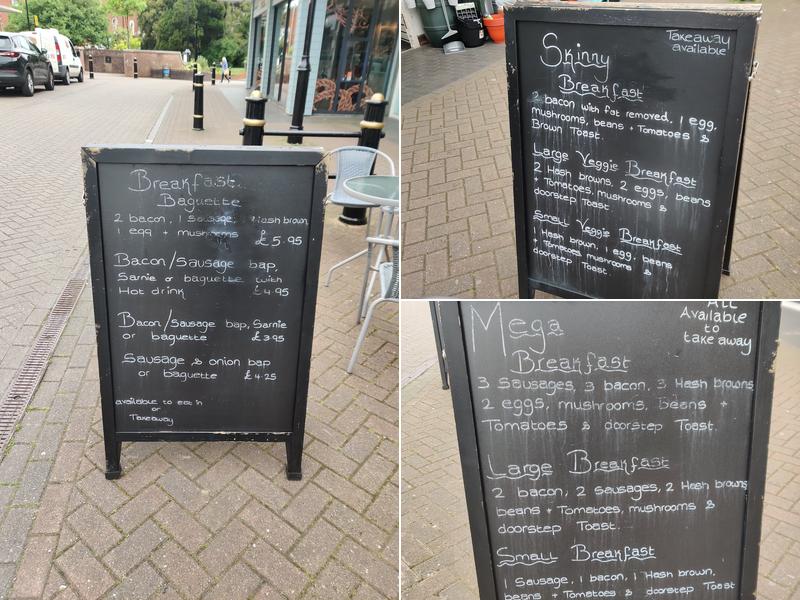 Breakfast
Baguette
2 bacon, 1 sausage, Hash brown
1 egg + mushrooms
£5.95
Bacon/Sausage bap,
Sarnie or baguette with
Hot drink £4.95
Bacon/Sausage bap, Sarnie
or baguette £3.95
Sausage & onion bap
or baguette £4.25
available to eat in
or
Takeaway
Takeaway
available
Skinny
Breakfast
2 bacon with fat removed, 1 egg,
mushrooms, beans + Tomatoes &
Brown Toast.
Large Veggie Breakfast
2 Hash browns, 2 eggs, beans
+ Tomatoes, mushrooms &
doorstep Toast
Small Veggie Breakfast
1 Hash brown, 1 egg, beans
+ Tomatoes mushrooms &
doorstep Toast.
All
Available
to
take away
Mega
Breakfast
3 Sausages, 3 bacon, 3 Hash browns
2 eggs, mushrooms, Beans +
Tomatoes & doorstep Toast.
Large Breakfast
2 bacon, 2 sausages, 2 Hash browns
beans + Tomatoes, mushrooms &
doorstep Toast.
Small Breakfast
1 Sausage, 1 bacon, 1 Hash brown,
beans + Tomatoes & doorstep Toast